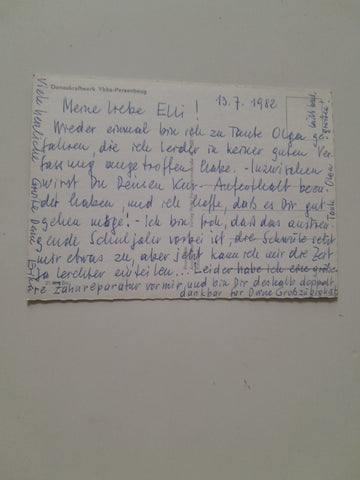 Donaukraftwerk Ybbs-Persenbeug
13.7.1982
Meine liebe Elli!
Wieder einmal bin ich zu Tante Olga ge-
fahren, die ich leider in keiner guten Ver-
fassung angetroffen habe. - Inzwischen
wirst Du Deinen Kur-Aufenthalt been-
det haben, und ich hoffe, daß es Dir gut
gehen möge! - Ich bin froh, daß das anstren-
ende Schuljahr vorbei ist, die Schwüle setzt
mir etwas zu, aber jetzt kann ich mir die Zeit
ja leichter einteilen... Leider habe ich eine größe-
re Zahnreparatur vor mir, und bin Dir deshalb doppelt
dankbar für Deine Großzügigkeit
Viele herzliche Grüße Deine Erika
Tante Olga